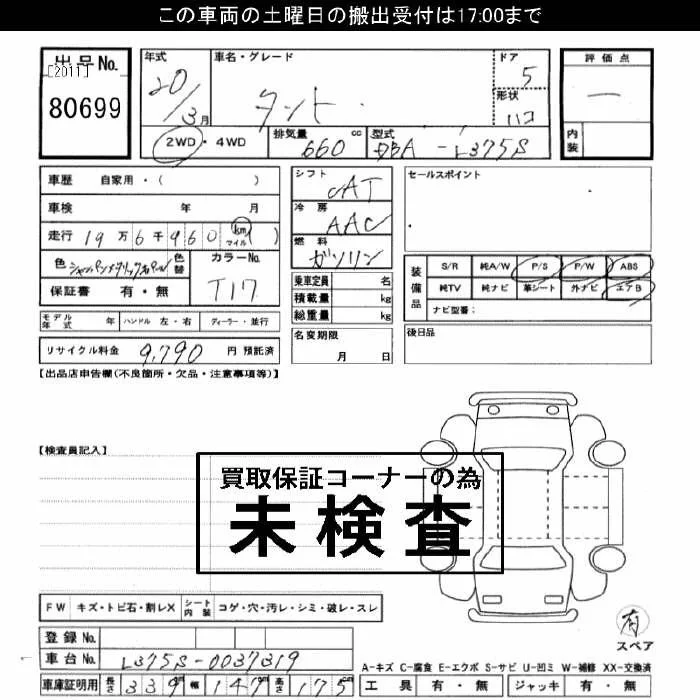 この車両の土曜日の搬出受付は17:00まで
出品No.
[2011]
80699
年式
20/3月
車名・グレード
タント
ドア
5
形状
ハコ
評価点
一
内装
2WD・4WD
排気量
660 cc
型式
DBA-L375S
車歴 自家用・( )
車検 年 月
走行 19万6千960 km マイル ( )
色 シャンパンメタリックオパール
色替
カラーNo.
T17
保証書 有・無
シフト
CAT
冷房
AAC
燃料
ガソリン
乗車定員 名
積載量 kg
総重量 kg
セールスポイント
装備品
S/R 純A/W P/S P/W ABS
純TV 純ナビ 革シート 外ナビ エアB
ナビ型番:
モデル年式 年 ハンドル 左・右 ディーラー・並行
名変期限
月 日
後日品
リサイクル料金 9,790 円 預託済
【出品店申告欄(不良箇所・欠品・注意事項等)】
【検査員記入】
買取保証コーナーの為
未検査
FW キズ・トビ石・割レX シート内装 コゲ・穴・汚レ・シミ・破レ・スレ
有
スペア
登録No.
車台No. L375S-0037319
車庫証明用 長さ 339 幅 147 高さ 175
A-キズ C-腐食 E-エクボ S-サビ U-凹ミ W-補修 XX-交換済
工具 有・無 ジャッキ 有・無